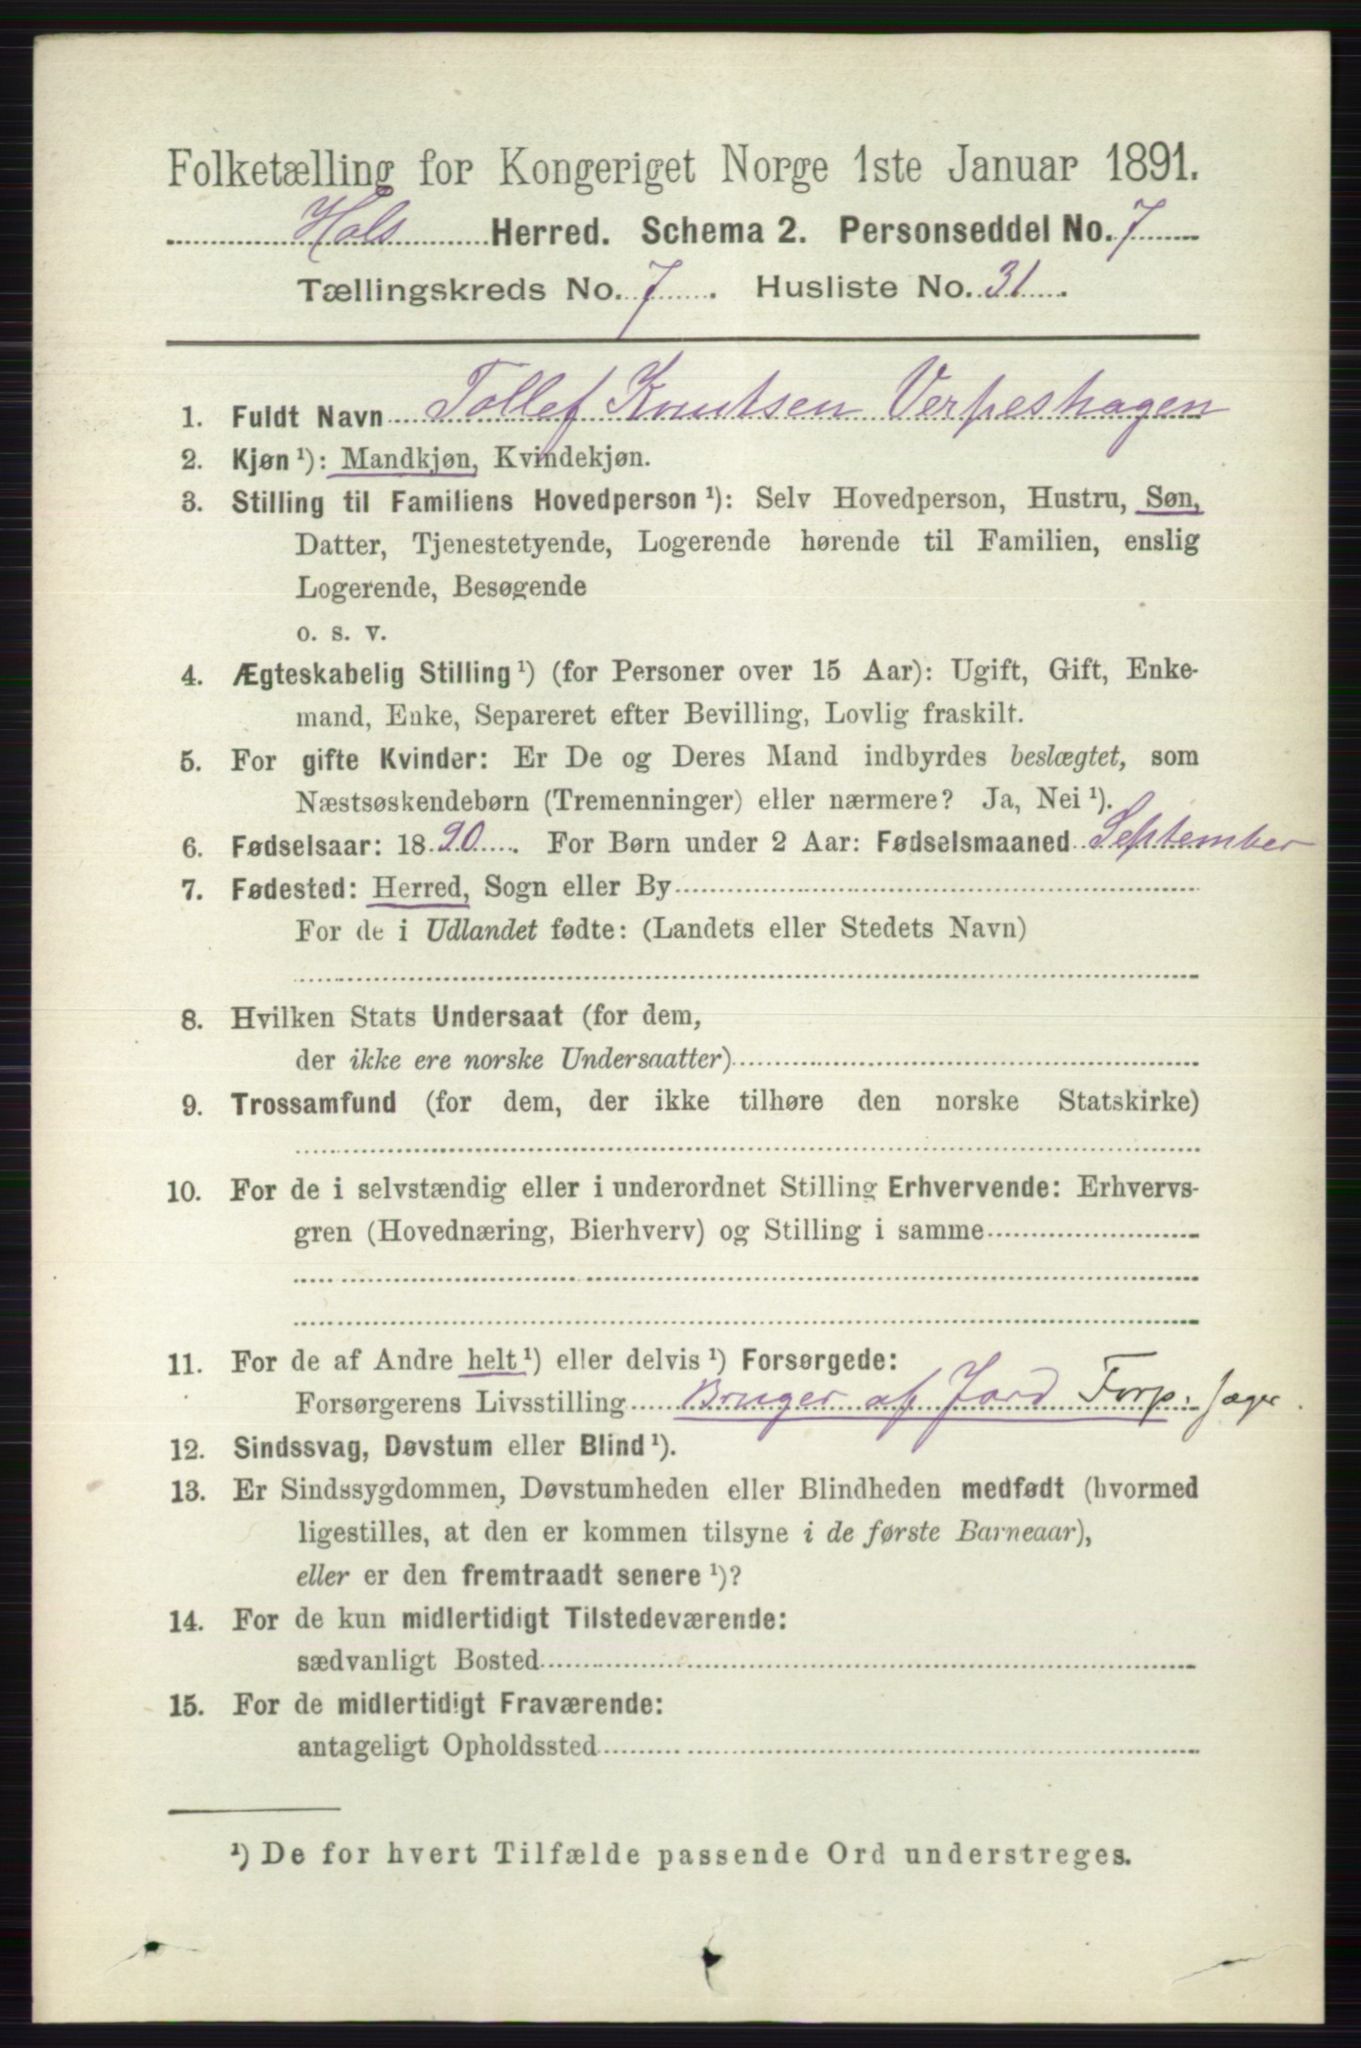 Folketælling for Kongeriget Norge 1ste Januar 1891.
Hols Herred. Schema 2. Personseddel No. 7
Tællingskreds No. 7. Husliste No. 31.
1. Fuldt Navn Tollef Knutsen Verpeshagen
2. Kjøn ¹): Mandkjøn, Kvindekjøn.
3. Stilling til Familiens Hovedperson ¹): Selv Hovedperson, Hustru, Søn,
Datter, Tjenestetyende, Logerende hørende til Familien, enslig
Logerende, Besøgende
o. s. v.
4. Ægteskabelig Stilling ¹) (for Personer over 15 Aar): Ugift, Gift, Enke-
mand, Enke, Separeret efter Bevilling, Lovlig fraskilt.
5. For gifte Kvinder: Er De og Deres Mand indbyrdes beslægtet, som
Næstsøskendebørn (Tremenninger) eller nærmere? Ja, Nei ¹).
6. Fødselsaar: 1890. For Børn under 2 Aar: Fødselsmaaned September
7. Fødested: Herred, Sogn eller By
For de i Udlandet fødte: (Landets eller Stedets Navn)
8. Hvilken Stats Undersaat (for dem,
der ikke ere norske Undersaatter)
9. Trossamfund (for dem, der ikke tilhøre den norske Statskirke)
10. For de i selvstændig eller i underordnet Stilling Erhvervende: Erhvervs-
gren (Hovednæring, Bierhverv) og Stilling i samme
11. For de af Andre helt ¹) eller delvis ¹) Forsørgede:
Forsørgerens Livsstilling Bruger af Jord Forp. Jæger.
12. Sindssvag, Døvstum eller Blind ¹).
13. Er Sindssygdommen, Døvstumheden eller Blindheden medfødt (hvormed
ligestilles, at den er kommen tilsyne i de første Barneaar),
eller er den fremtraadt senere ¹)?
14. For de kun midlertidigt Tilstedeværende:
sædvanligt Bosted
15. For de midlertidigt Fraværende:
antageligt Opholdssted
¹) De for hvert Tilfælde passende Ord understreges.